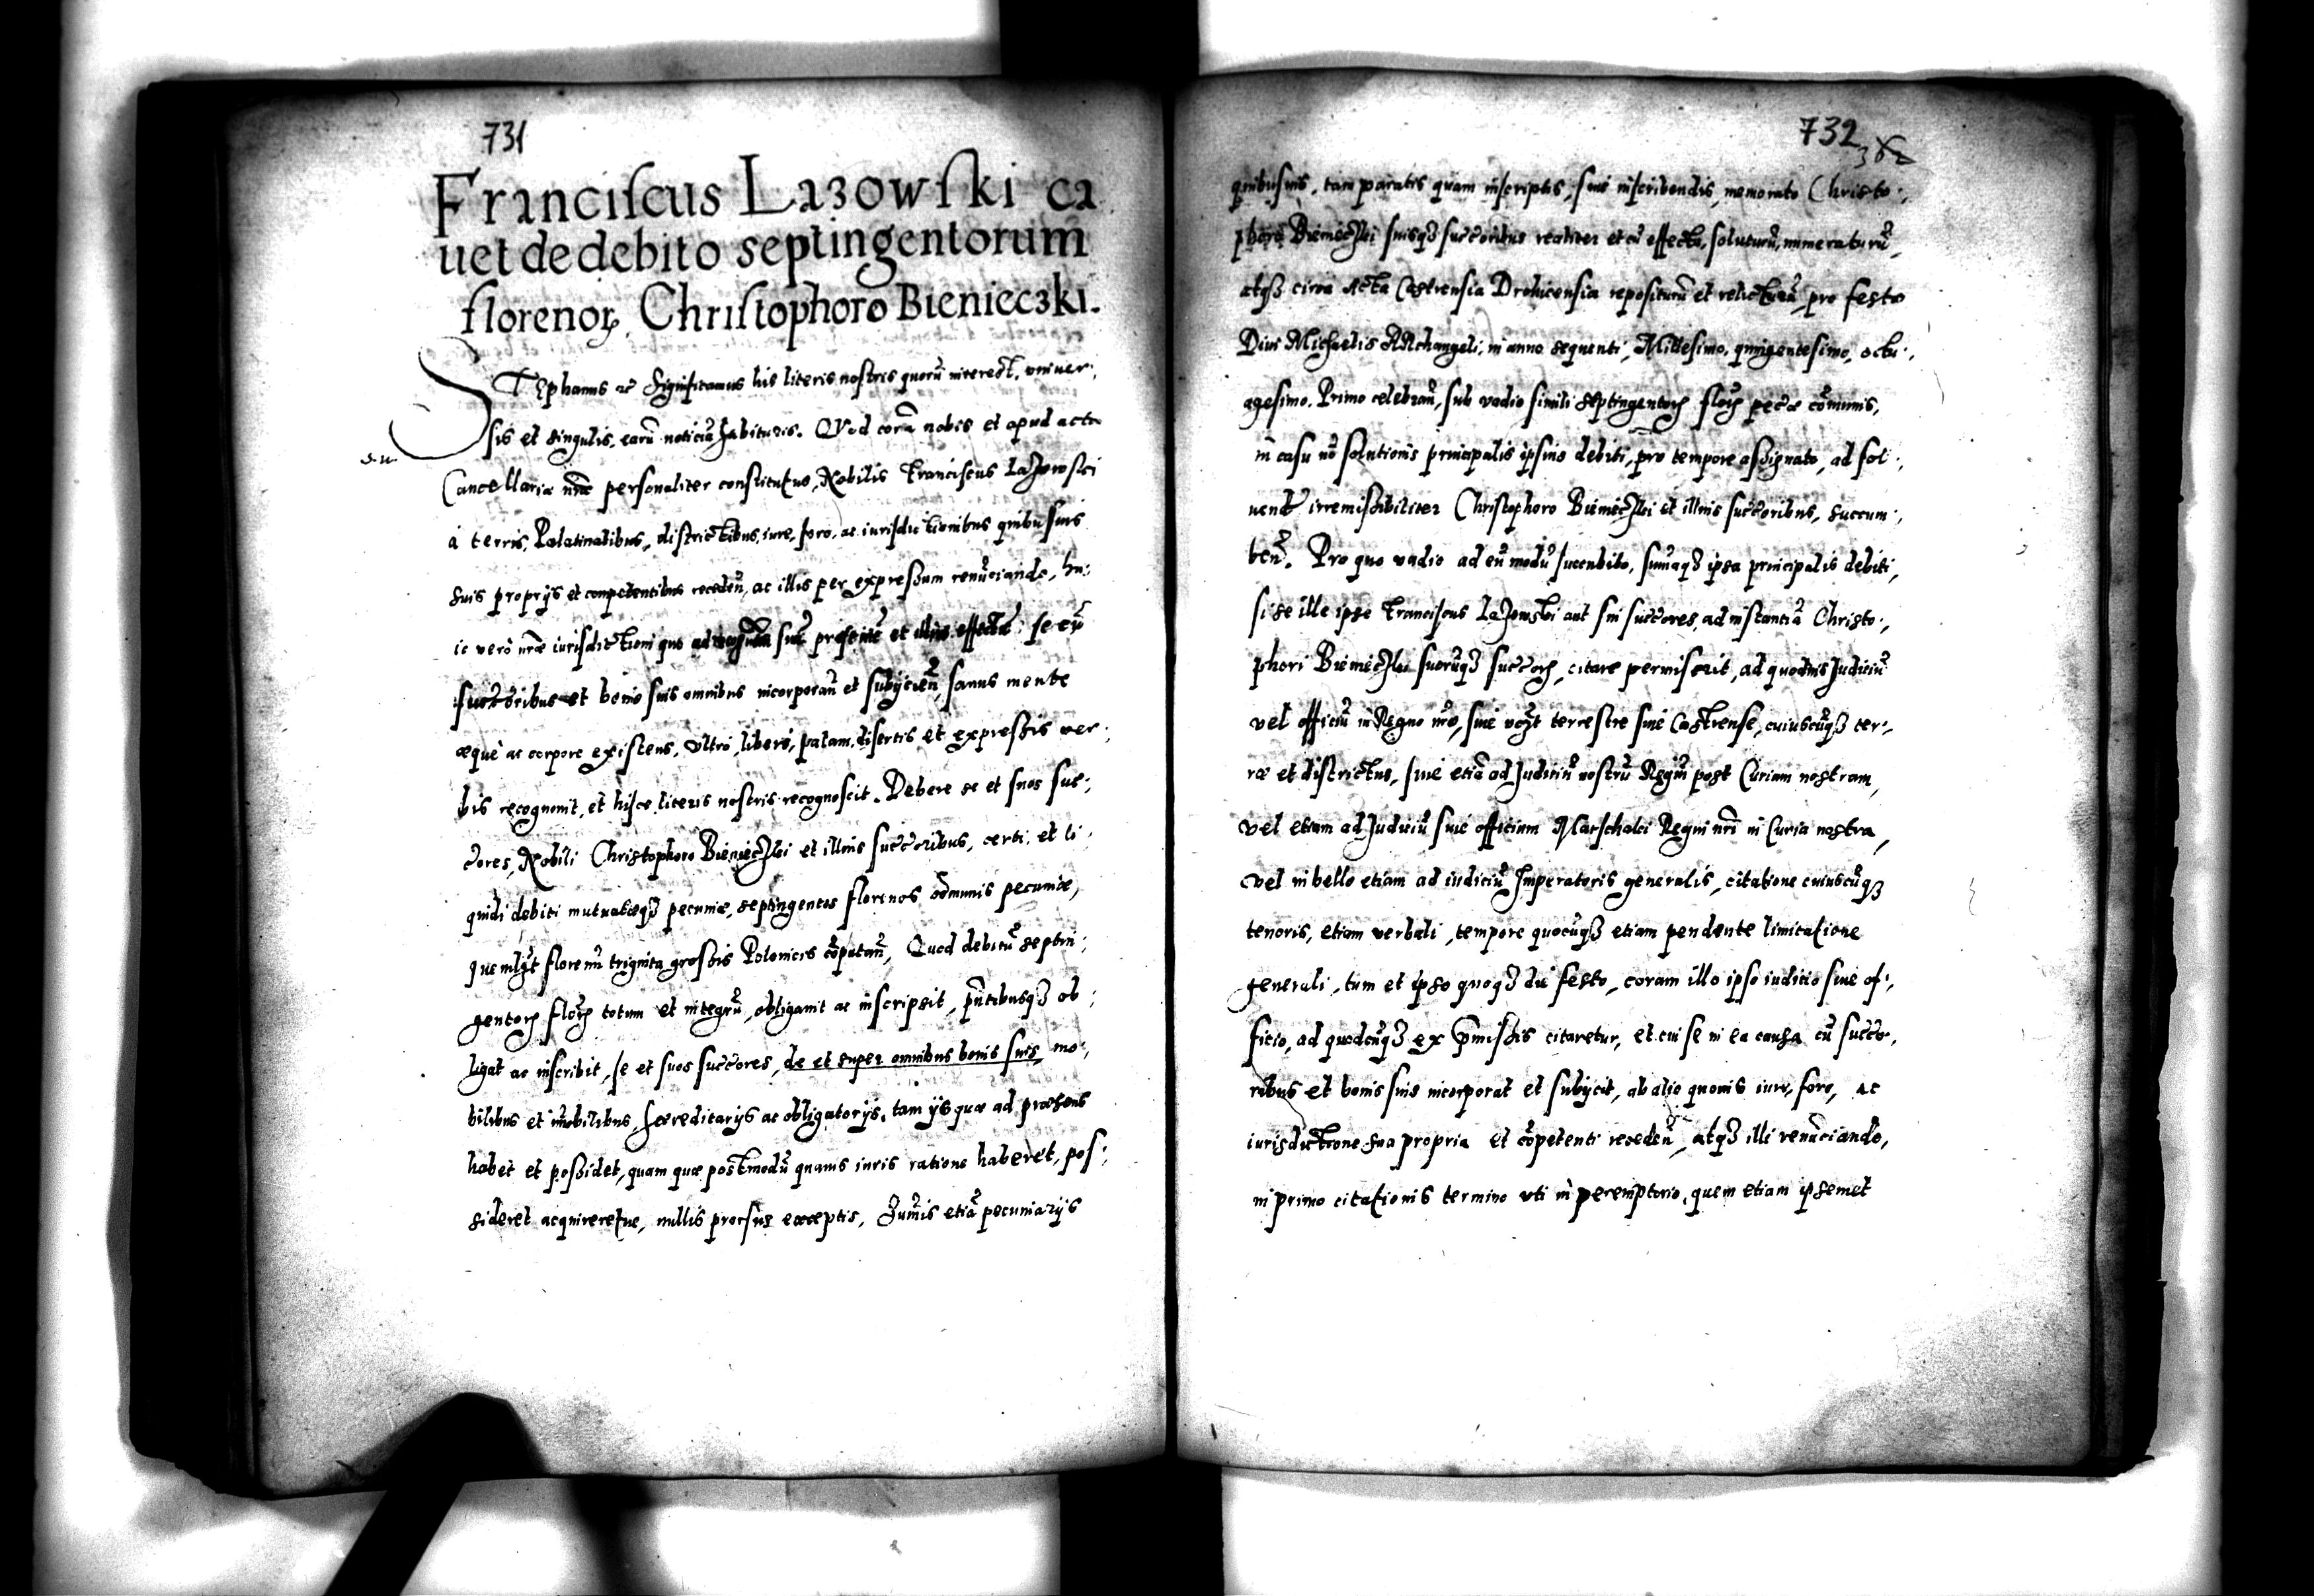 731
Franciscus Lazowski ca
uet de debito septingentorum
florenoꝝ, Christophoro Bienieczki.
STephanus ac Significamus his literis nostris quorũ interest, vniuer:,
sis et singulis, earũ noticiã habituris. QVod corã nobis et apud acta
Cancellariæ nr̃æ personaliter constitutus, Nobilis Franciscus Lazowski
à terris, Palatinatibus, districtibus, iure, foro, ac iurisdictionibus quibusuis
suis proprijs et competentibus receden̄, ac illis per expressum renũciando, hu:
ic verò nr̃æ iurisdictioni quo ad se cũ
succ̃oribus et bonis suis omnibus incorporan̄ et subijcien̄, sanus mente
æquè ac corpore existens, vltrò, liberè, palam, disertis et expressis ver:,
bis recognouit, et hisce literis nostris recognoscit. Debere se et suos suc:,
c̃ores, Nobili Christophoro Bienieczki et illius succ̃oribus, certi, et li:,
quidi debiti mutuatæqȝ pecuniæ, septingentos florenos cõmunis pecuniæ,
quemlꝫt florenũ triginta grossis Polonicis cõputan̄, Quod debitũ septin:,
gentoꝝ floꝝ totum et integrũ, obligauit ac inscripsit, pñtibusqȝ ob:,
ligat ac inscribit, se et suos succ̃ores, de et super omnibus bonis suis mo:,
bilibus et im̃obilibus, hæreditarijs ac obligatorijs, tam ijs quæ ad præsens
habet et possidet, quam quæ postmodũ quauis iuris ratione haberet, pos:,
sideret acquireretue, nullis prorsus exceptis, sum̃is etiã pecuniarijs
732
quibusuis, tam paratis quam inscriptis, siue inscribendis, memorato Christo:,
phoro Bienieczki suisqȝ succ̃oribus realiter et cũ effectu, soluturũ, numeraturũ,
atqȝ circa Acta Castrensia Drohicensia repositurũ et relicturũ, pro festo
Diui Michaelis ARchangeli, in anno sequenti, Millesimo, quingentesimo, octu:,
agesimo. Primo celebran̄, sub vadio simili septingentoꝝ floꝝ pec̃æ cõmunis,
in casu nõ solutionis principalis ipsius debiti, pro tempore assignato, ad sol:,
uend̃ irremissibiliter Christophoro Bienieczki et illius succ̃oribus, succum:,
ben̄. Pro quo vadio ad eũ modũ sucenbito, sum̃aqȝ ipsa principalis debiti,
si se ille ipse Franciscus Lazowski aut sui succ̃ores, ad instantiã Christo:,
phori Bienieczki suorũqȝ succ̃oꝝ, citare permiserit, ad quoduis Judiciũ
vel officiũ in Regno nr̃o, siue terrestre siue Castrense, cuiuscũqȝ ter:,
ræ et districtus, siue etiã ad Judiciũ nostrũ Regiũ post Curiam nostram,
vel etiam ad Judiciũ siue officium Marschalci Regni nr̃i in Curia nostra,
vel in bello etiam ad iudiciũ Imperatoris generalis, citatione cuiuscũqȝ
tenoris, etiam verbali, tempore quocũqȝ etiam pendente limitatione
generali, tum et ipso quoqȝ die festo, coram illo ipso iudicio siue of:,
ficio, ad quodcũqȝ ex p̃missis citaretur, et cui se in ea causa cũ succ̃o,
ribus et bonis suis incorporat et subijcit, ab alio quouis iure, foro, ac
iurisdictione sua propria et cõpetenti receden̄, atqȝ illi renũciando,
in primo citationis termino vti in peremptorio, quem etiam ipsemet